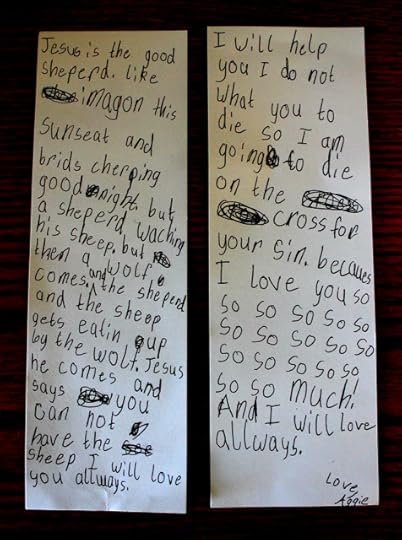 Jesus is the good
sheperd. like
imagon this
sunseat and
brids cherping
good night. but
a sheperd waching
his sheep, but
then a wolf
comes, and the sheperd
and the sheep
gets eatin up
by the wolf. Jesus
he comes and
says you
can not
have the
sheep I will love
you allways.
I will help
you I do not
what you to
die so I am
going to die
on the
cross for
your sin. because
I love you so
so so so so so
so so so so so so
so so so so so
so so much!
And I will love
allways.
Love,
Aggie